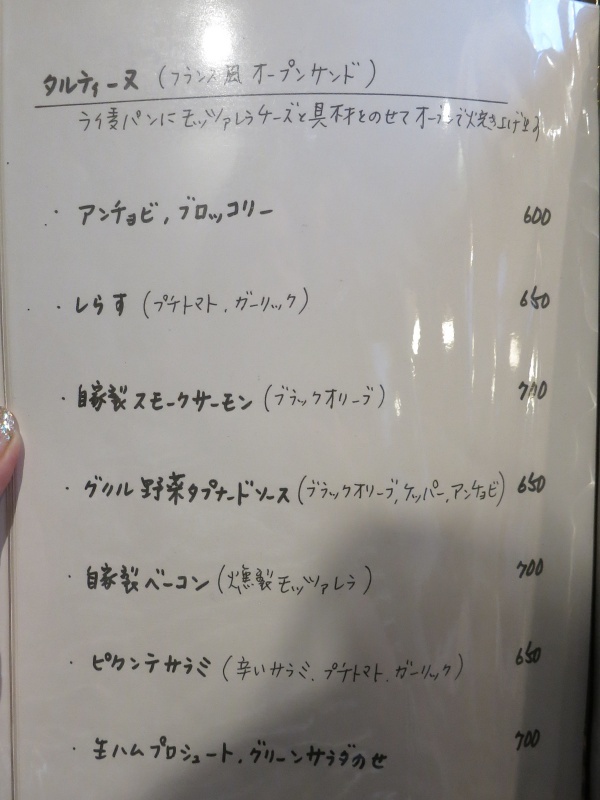 タルティーヌ (フランス風オープンサンド)
ライ麦パンにモッツァレラチーズと具材をのせてオーブンで焼き上げます
・アンチョビ, ブロッコリー 600
・しらす (プチトマト, ガーリック) 650
・自家製スモークサーモン (ブラックオリーブ) 700
・グリル野菜タプナードソース (ブラックオリーブ, ケッパー, アンチョビ) 650
・自家製ベーコン (燻製モッツァレラ) 700
・ピカンテサラミ (辛いサラミ, プチトマト, ガーリック) 650
・生ハムプロシュート, グリーンサラダのせ 700